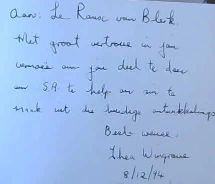 Aan: Le Roux van Blerk.
Met groot vertroue in jou
vermoë om jou deel te doen
om S.A. te help om sin te
maak uit die huidige ontwikkelings
Beste wense.
Rhea
8/12/94